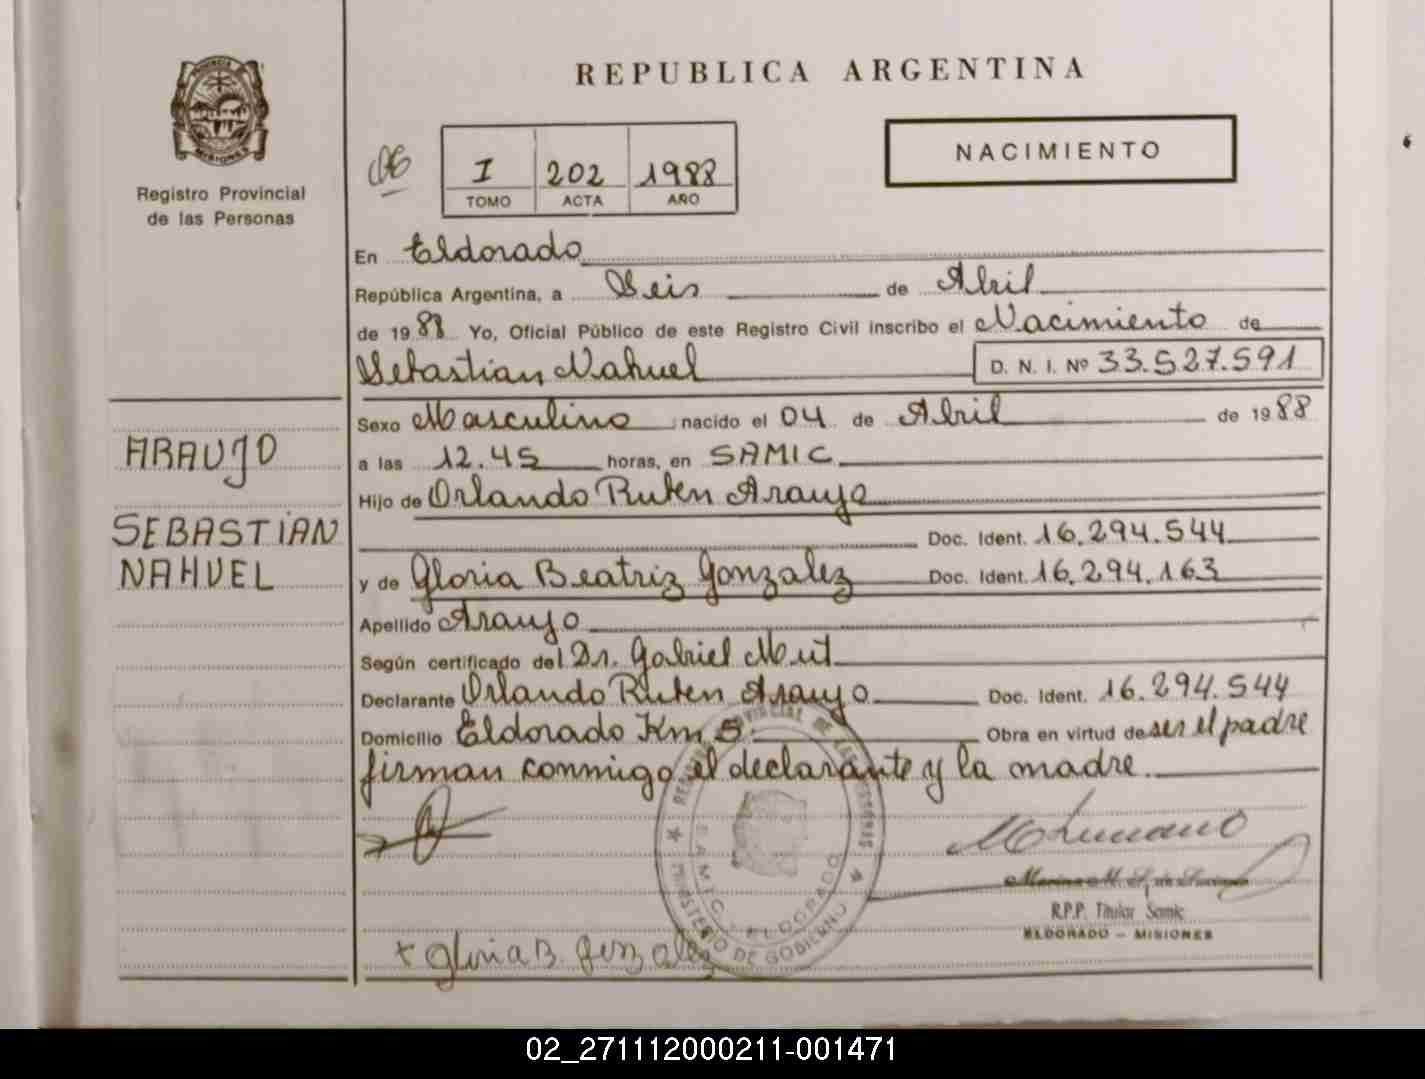 PROVINCIA
MISIONES
Registro Provincial
de las Personas
ARAUJO
SEBASTIAN
NAHUEL
REPUBLICA ARGENTINA
I 202 1988
TOMO ACTA AÑO
NACIMIENTO
En Eldorado
República Argentina, a Seis de Abril
de 1988 Yo, Oficial Público de este Registro Civil inscribo el Nacimiento de
Sebastian Nahuel D. N. I. Nº 33.527.591
Sexo Masculino nacido el 04 de Abril de 1988
a las 12.45 horas, en SAMIC
Hijo de Orlando Ruben Araujo
Doc. Ident. 16.294.544
y de Gloria Beatriz Gonzalez Doc. Ident. 16.294.163
Apellido Araujo
Según certificado del Dr. Gabriel Mut
Declarante Orlando Ruben Araujo Doc. Ident. 16.294.544
Domicilio Eldorado Km 5 Obra en virtud de ser el padre
firman conmigo el declarante y la madre.
R.P.P. Titular Samic
ELDORADO - MISIONES
+ Gloria B. Gonzalez
MINISTERIO DE GOBIERNO
S.A.M.I.C. - ELDORADO
02_271112000211-001471